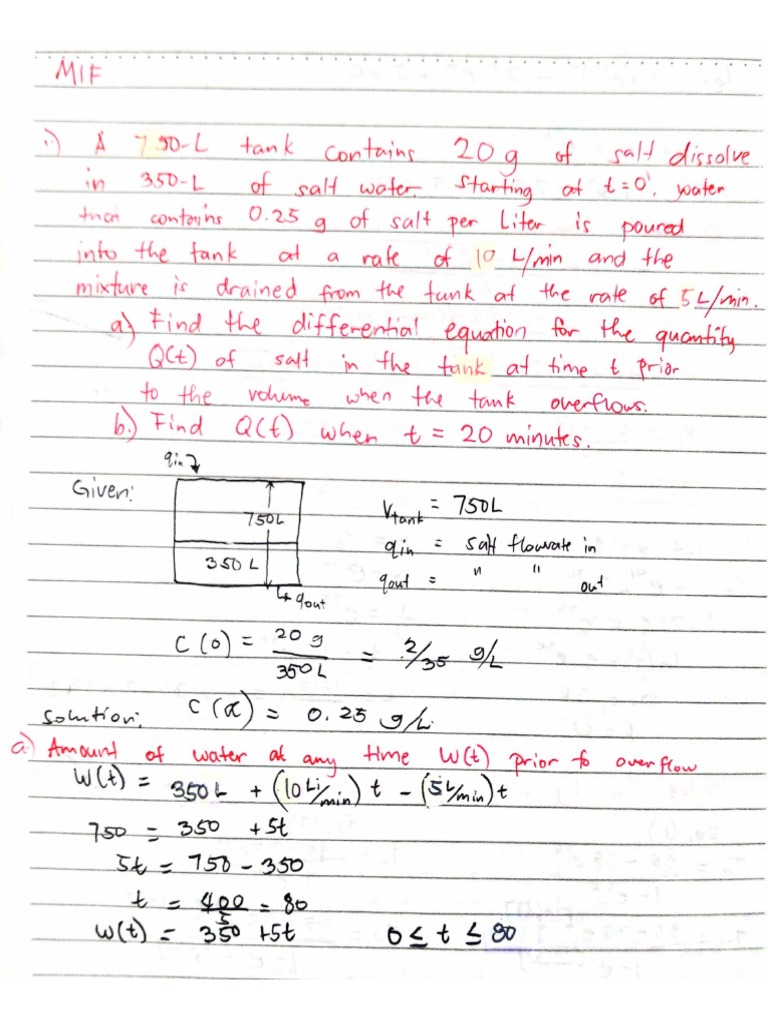 MIF
1.) A 750-L tank contains 20 g of salt dissolve
in 350-L of salt water. Starting at t=0, water
that contains 0.25 g of salt per Liter is poured
into the tank at a rate of 10 L/min and the
mixture is drained from the tank at the rate of 5L/min.
a) Find the differential equation for the quantity
Q(t) of salt in the tank at time t prior
to the volume when the tank overflows.
b.) Find Q(t) when t = 20 minutes.
qin
Given:
750L
350 L
qout
Vtank = 750L
qin = salt flowrate in
qout = " " out
C(0) = 20 g / 350L = 2/35 g/L
Solution: C(x) = 0.25 g/L
a) Amount of water at any time W(t) prior to overflow
W(t) = 350L + (10 Li/min) t - (5L/min)t
750 = 350 + 5t
5t = 750 - 350
t = 400/5 = 80
W(t) = 350 +5t 0 ≤ t ≤ 80